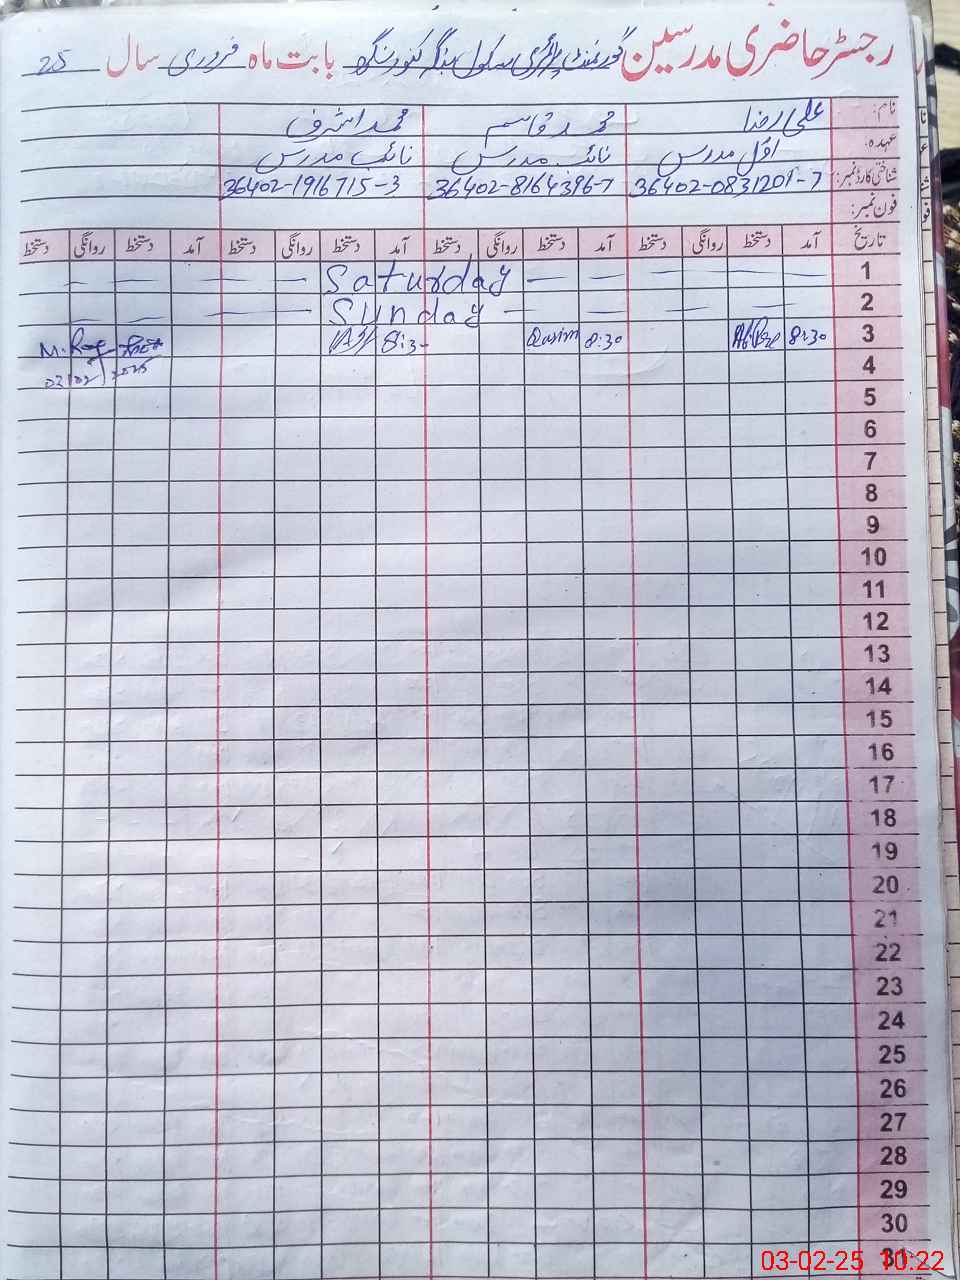 رجسٹر حاضری مدرسین گورنمنٹ پرائمری سکول بابت ماہ فروری سال 25
نام: علی رضا محمد قاسم محمد اشرف
عہدہ: اول مدرس نائب مدرس نائب مدرس
شناختی کارڈ نمبر: 36402-0831201-7 36402-8164396-7 36402-1916715-3
فون نمبر:
تاریخ آمد دستخط روانگی دستخط آمد دستخط روانگی دستخط آمد دستخط روانگی دستخط آمد دستخط روانگی دستخط
1 — — — — — Saturday — — — — —
2 — — — — Sunday — — — — —
3 8:30 8:30 Qasim 8:3-
4
5
6
7
8
9
10
11
12
13
14
15
16
17
18
19
20
21
22
23
24
25
26
27
28
29
30
31
03-02-25 10:22